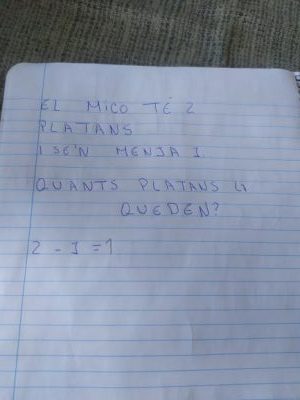 EL MICO TÉ 2
PLATANS
I SE'N MENJA 1.
QUANTS PLATANS LI
QUEDEN?
2 - 1 = 1